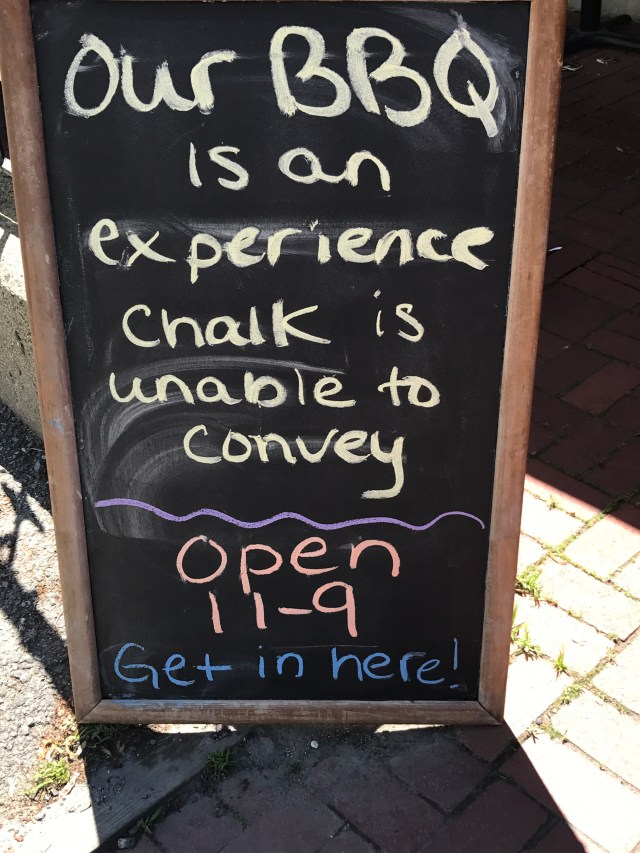 Our BBQ
is an
experience
Chalk is
unable to
convey
Open
11-9
Get in here!